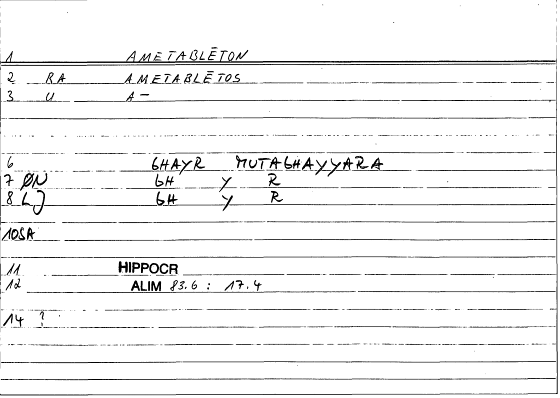 1 AMETABLĒTON
2 RA AMETABLĒTOS
3 U A-
6 GHAYR MUTAGHAYYARA
7 ØN GH Y R
8 LJ GH Y R
10 SA
11 HIPPOCR
12 ALIM 83.6 : 17.4
14 ?